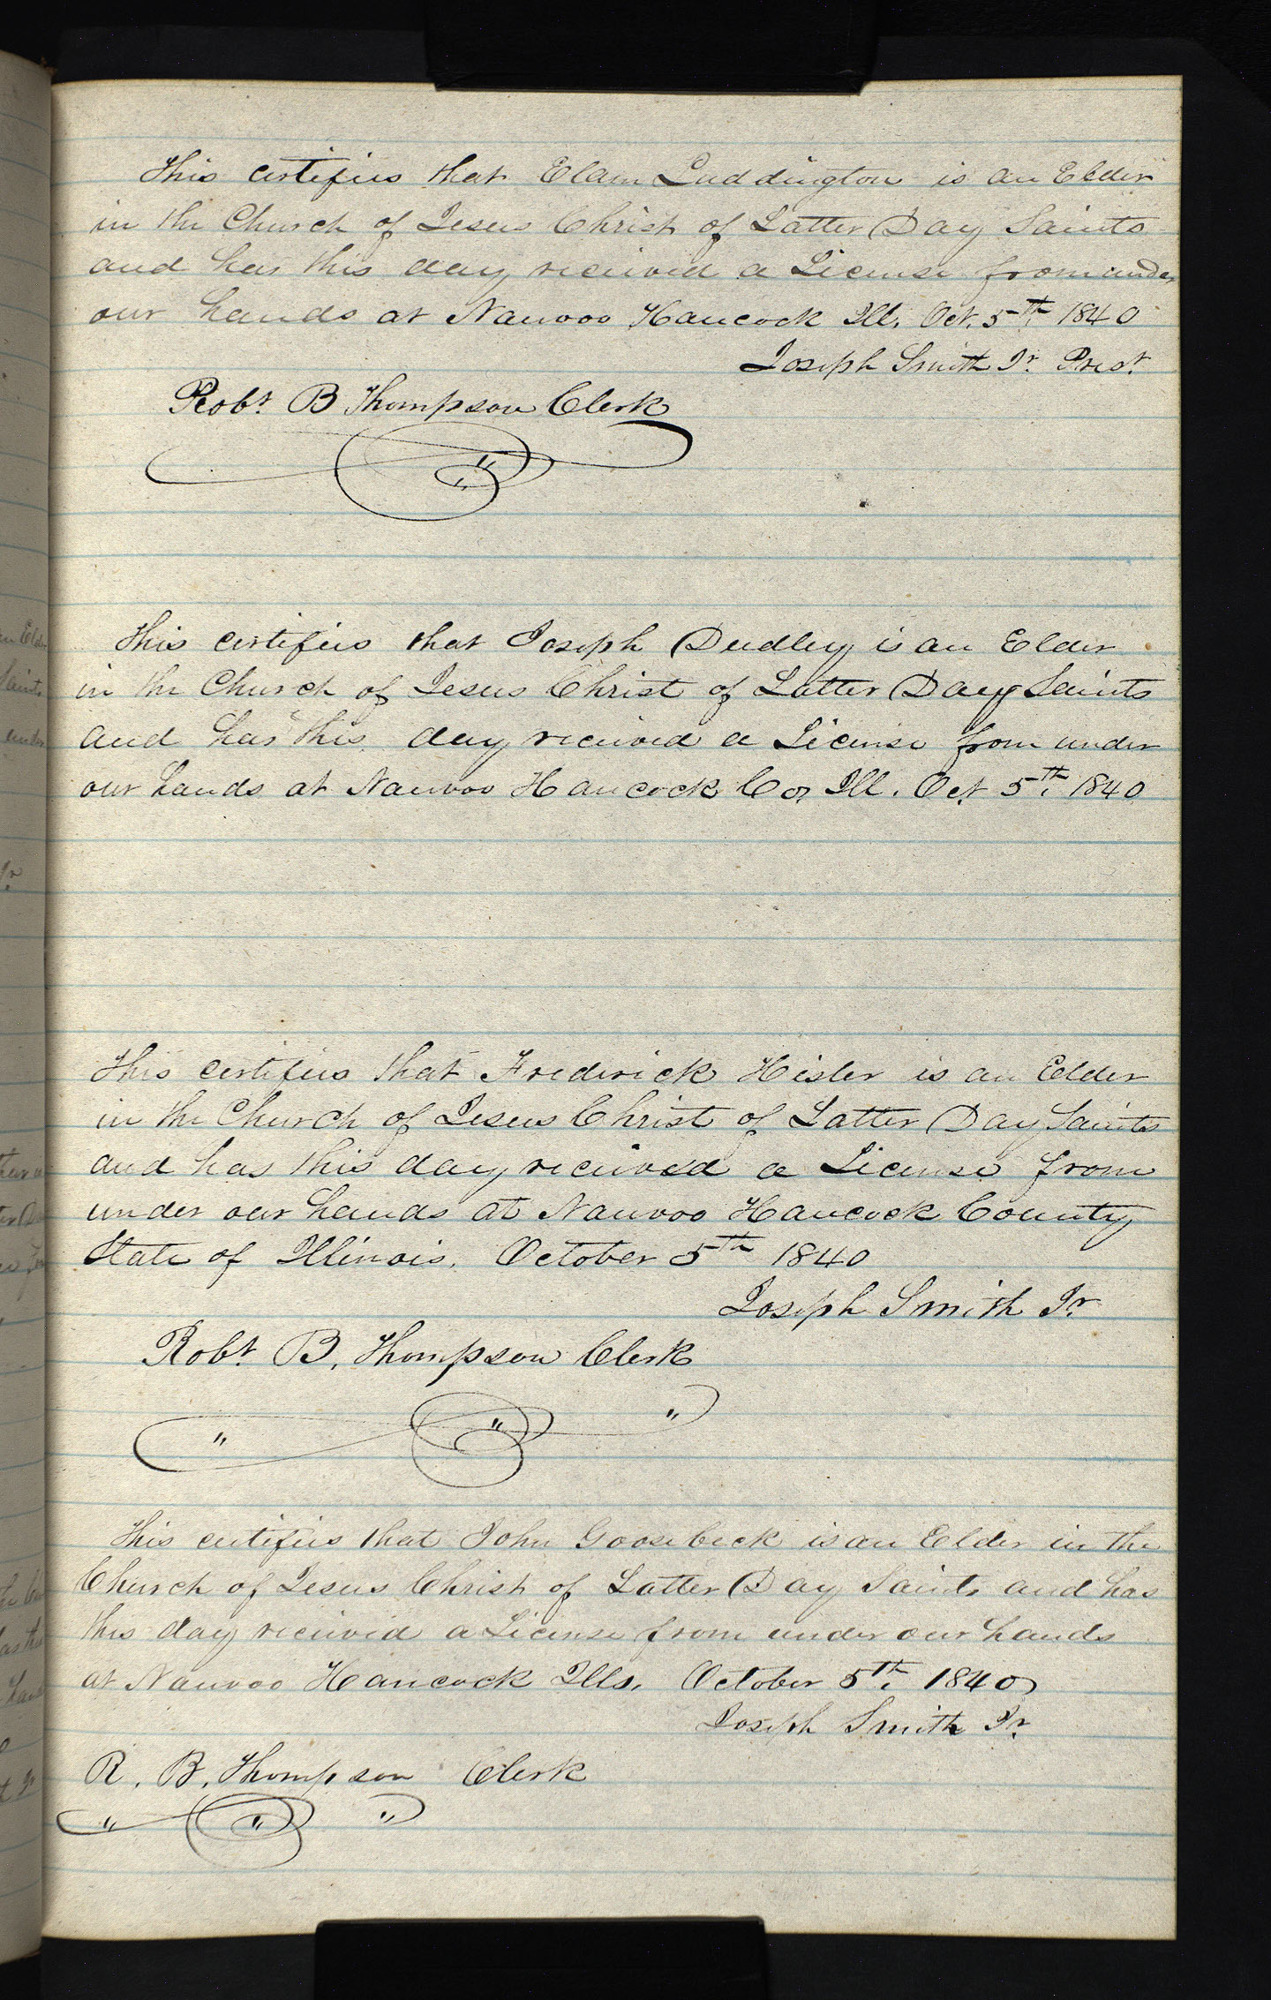 This certifies that Elam Luddington is an Elder
in the Church of Jesus Christ of Latter Day Saints
and has this day received a License from under
our hands at Nauvoo Hancock Ill. Oct. 5th 1840
Joseph Smith Jr. Prest.
Robt. B Thompson Clerk
This certifies that Joseph Dudley is an Elder
in the Church of Jesus Christ of Latter Day Saints
and has this day received a License from under
our hands at Nauvoo Hancock Co, Ill. Oct 5th. 1840
This certifies that Frederick Hisler is an Elder
in the Church of Jesus Christ of Latter Day Saints
and has this day received a License from
under our hands at Nauvoo Hancock County
State of Illinois. October 5th 1840
Joseph Smith Jr.
Robt. B. Thompson Clerk
This certifies that John Goosebeck is an Elder in the
Church of Jesus Christ of Latter Day Saints and has
this day received a License from under our hands
at Nauvoo Hancock Ills. October 5th. 1840
Joseph Smith Jr.
R. B. Thompson Clerk